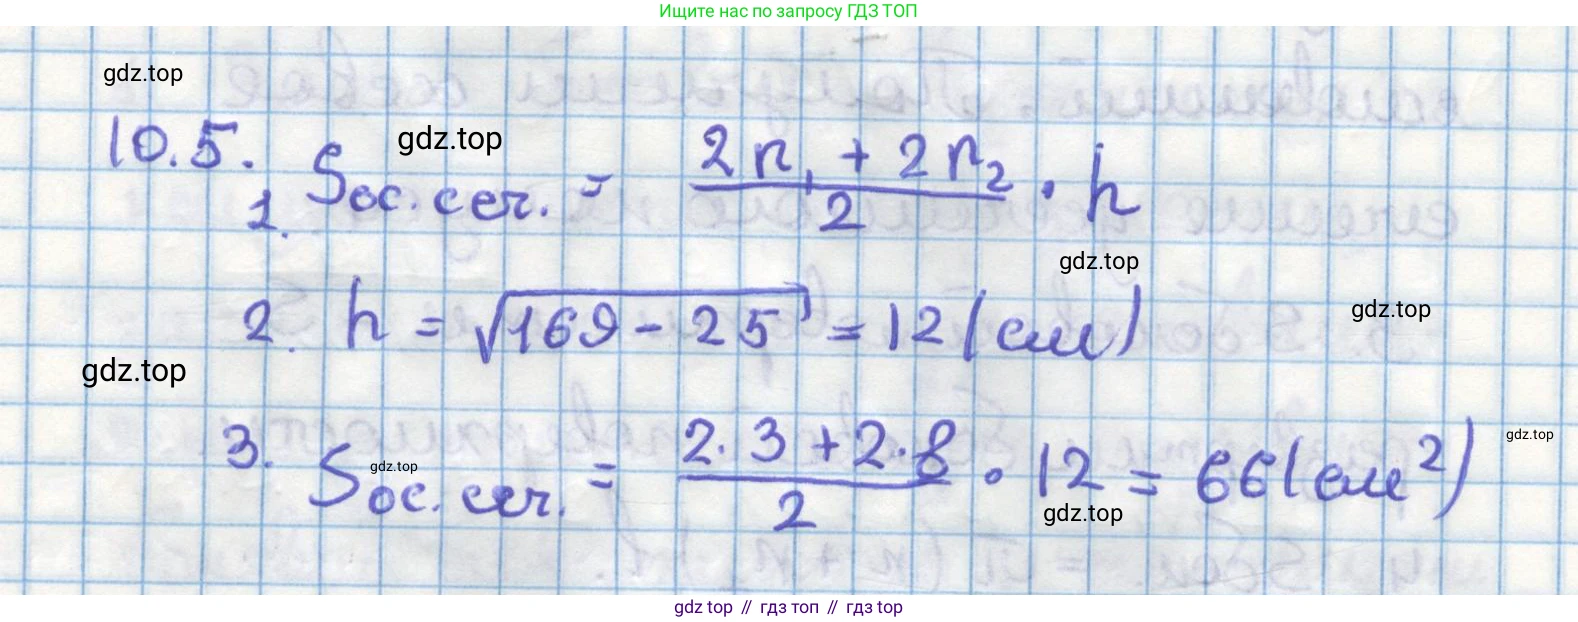 Ищите нас по запросу ГДЗ ТОП
gdz.top
10.5.
gdz.top
1. Sос.сеч. = (2r₁ + 2r₂)/2 · h
gdz.top
2. h = √(169 - 25) = 12 (см)
gdz.top
gdz.top
3. Sос.сеч. = (2·3 + 2·8)/2 · 12 = 66 (см²)
gdz.top
gdz.top
gdz.top
gdz top // гдз топ // гдз top